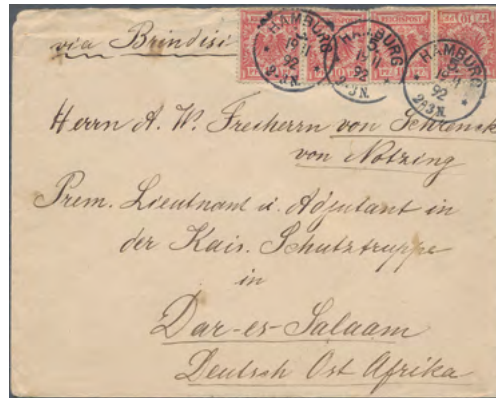 via Brindisi
REICHSPOST
HAMBURG
5
19 11
92
2-3N.
HAMBURG
5
19 11
92
2-3N.
HAMBURG
5
92
2-3N.
10
Herrn A. W. Freiherrn von Schrenck
von Notzing
Prem. Lieutnant u. Adjutant in
der Kais. Schutztruppe
in
Dar-es-Salaam
Deutsch Ost Afrika